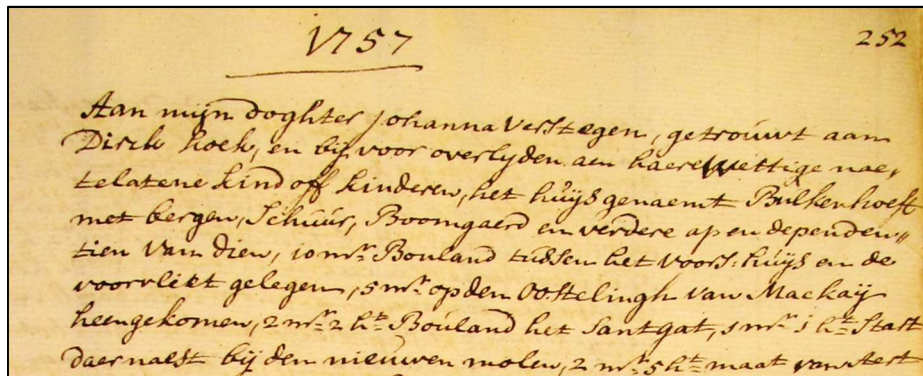 1757
252
Aan mijn doghter Johanna Verstegen, getrouwt aan
Dirck hoek, en bij voor overlyden aen haere Wettige nae„
telatene kind off kinderen, het huijs genaemt Bulkenhoeft
met bergen, Schuur, Boomgaerd en verdere ap en dependen„
tien van dien, 10 mr. Bouland tussen het voors: huijs en de
voorvliet gelegen, 5 mr. op den Oostelingh van Mackaij
heengekomen, 2 mr. 2 ht. Bouland het Santgat, 1 mr. 1 ht.
daernaest bij den nieuwen molen, 2 mr. 5 ht. maat van